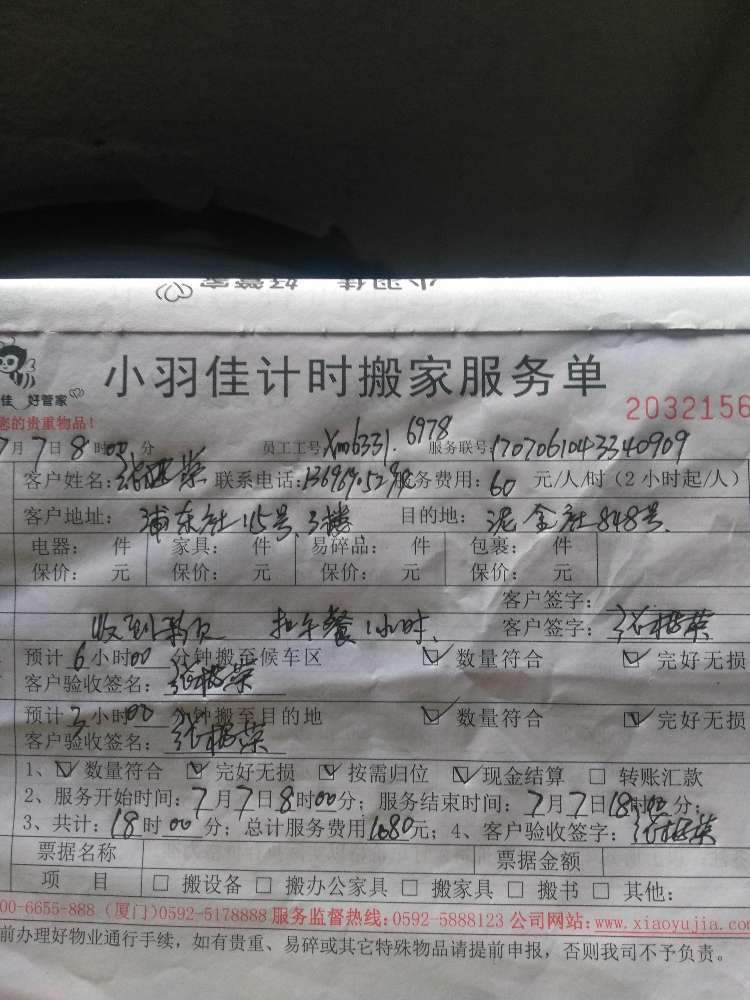 小羽佳 好管家
小羽佳计时搬家服务单
佳 好管家
您的贵重物品!
2032156
7月7日8时00分 员工工号:Xm6331.6978 服务联号:1707061043340909
客户姓名: 联系电话: 服务费用:60元/人/时(2小时起/人)
客户地址:浦东社115号3楼 目的地:泥金社848号
电器: 件 家具: 件 易碎品: 件 包裹: 件
保价: 元 保价: 元 保价: 元 保价: 元
客户签字:
收到 扣午餐1小时. 客户签字:
预计6小时00分钟搬至候车区 ☑数量符合 ☑完好无损
客户验收签名:
预计2小时00分钟搬至目的地 ☑数量符合 ☑完好无损
客户验收签名:
1、☑数量符合 ☑完好无损 ☑按需归位 ☑现金结算 □转账汇款
2、服务开始时间:7月7日8时00分;服务结束时间:7月7日18时00分;
3、共计:18时00分;总计服务费用1080元;4、客户验收签字:
票据名称 票据金额
项 目 □搬设备 □搬办公家具 □搬家具 □搬书 □其他:
00-6655-888 (厦门)0592-5178888 服务监督热线:0592-5888123 公司网站:www.xiaoyujia.com
前办理好物业通行手续,如有贵重、易碎或其它特殊物品请提前申报,否则我司不予负责。